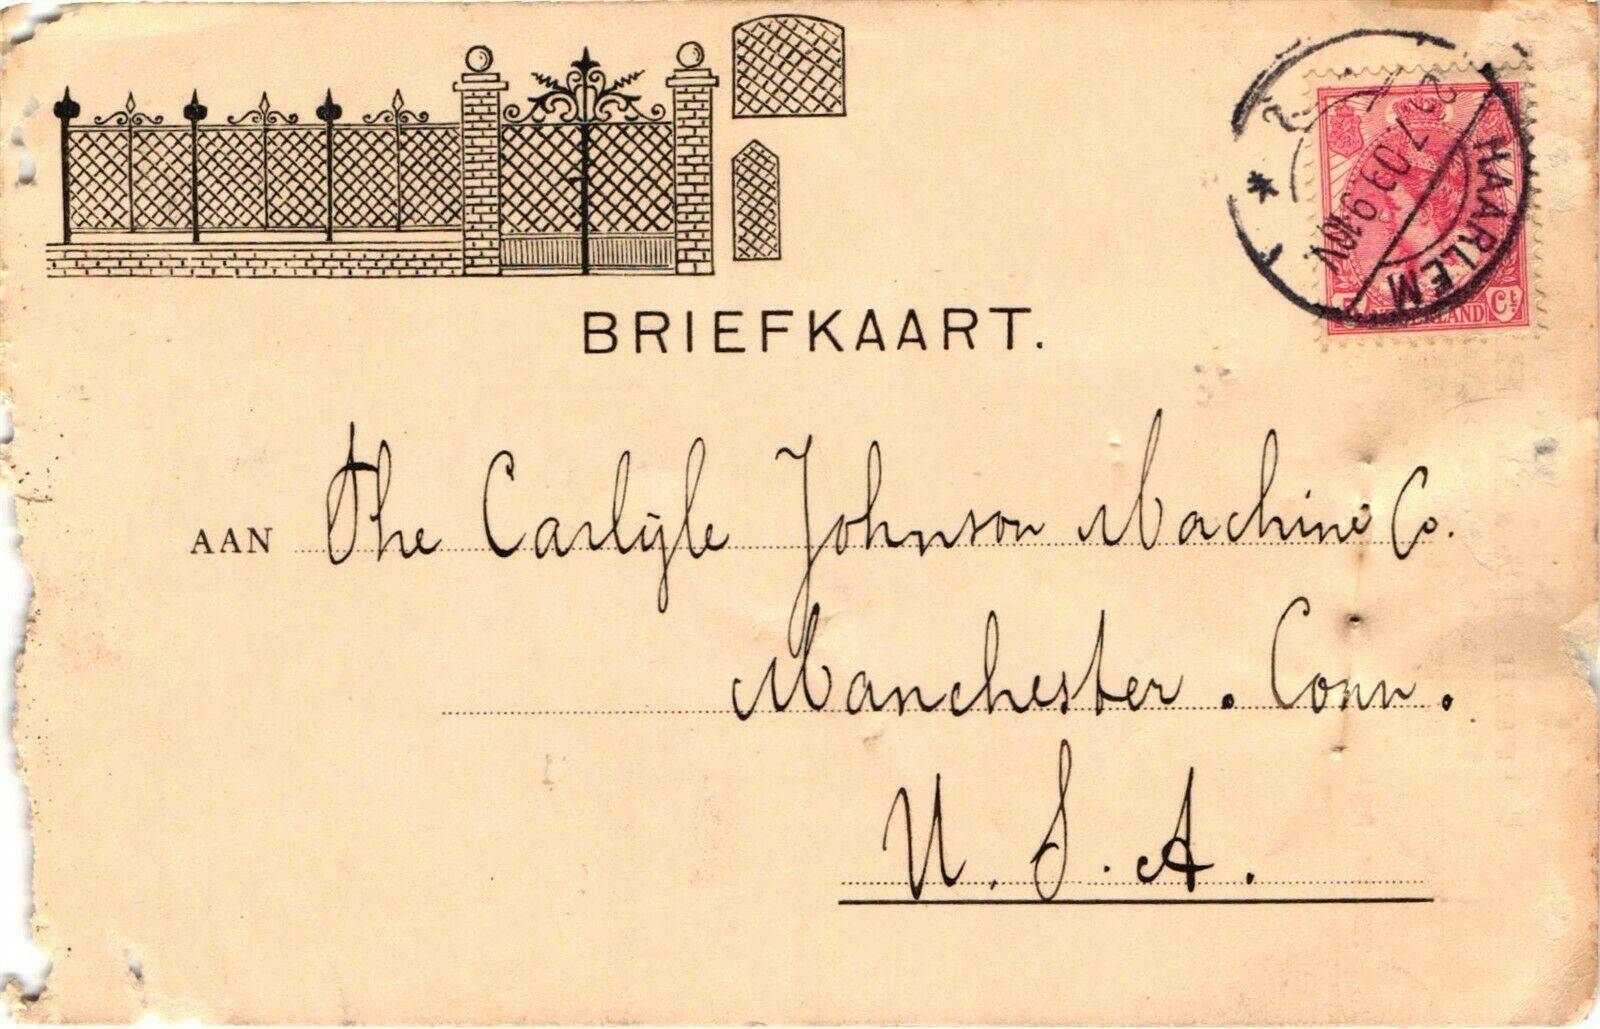 BRIEFKAART.
HAARLEM
7.09 9-10V.
5 NEDERLAND Ct
AAN The Carlyle Johnson Machine Co.
Manchester. Conn.
U.S.A.